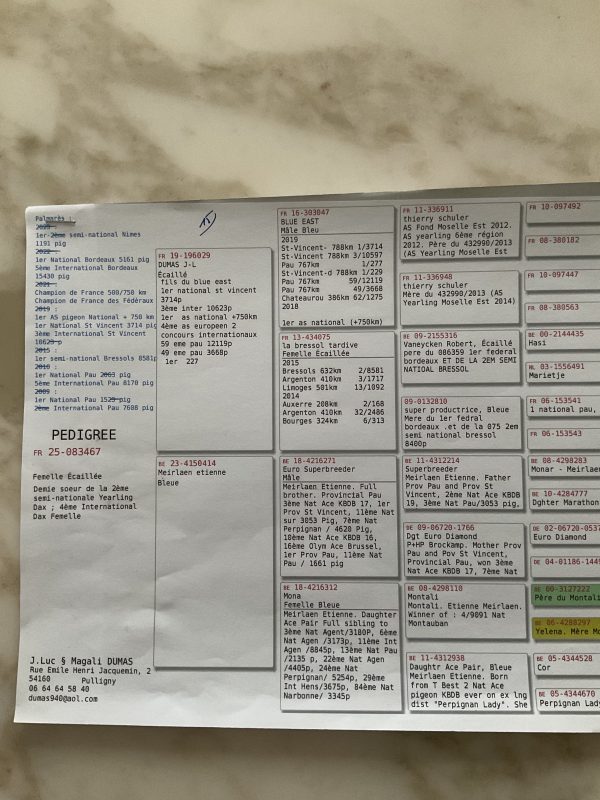 Palmarès :
2023 :
1er 2ème semi-national Nimes
1191 pig
2022 :
1er National Bordeaux 5161 pig
5ème International Bordeaux
15430 pig
2021 :
Champion de France 500/750 km
Champion de France des Fédéraux
2019 :
1er AS pigeon National + 750 km
1er National St Vincent 3714 pig
3ème International St Vincent
10623 p
2015 :
1er semi-national Bressols 8581p
2010 :
1er National Pau 2063 pig
5ème International Pau 8170 pig
2009 :
1er National Pau 1529 pig
2ème International Pau 7608 pig
PEDIGREE
FR 25-083467
Femelle Écaillée
Demie soeur de la 2ème
semi-nationale Yearling
Dax ; 4ème International
Dax Femelle
J.Luc § Magali DUMAS
Rue Emile Henri Jacquemin, 2
54160 Pulligny
06 64 64 58 40
dumas940@aol.com
FR 19-196029
DUMAS J-L
Écaillé
fils du blue east
1er national st vincent
3714p
3ème inter 10623p
1er as national +750km
4ème as europeen 2
concours internationaux
59 eme pau 12119p
49 eme pau 3668p
1er 227
BE 23-4150414
Meirlaen etienne
Bleue
FR 16-303047
BLUE EAST
Mâle Bleu
2019
St-Vincent- 788km 1/3714
St-Vincent 788km 3/10597
Pau 767km 1/277
St-Vincent-d 788km 1/229
Pau 767km 59/12119
Pau 767km 49/3668
Chateaurou 386km 62/1275
2018
1er as national (+750km)
FR 13-434075
la bressol tardive
Femelle Écaillée
2015
Bressols 632km 2/8581
Argenton 410km 3/1717
Limoges 501km 13/1092
2014
Auxerre 208km 2/168
Argenton 410km 32/2486
Bourges 324km 6/313
BE 18-4216271
Euro Superbreeder
Mâle
Meirlaen Etienne. Full
brother. Provincial Pau
3ème Nat Ace KBDB 17, 1er
Prov St Vincent, 11ème Nat
sur 3053 Pig, 7ème Nat
Perpignan / 4620 Pig,
18ème Nat Ace KBDB 16,
16ème Olym Ace Brussel,
1er Prov Pau, 11ème Nat
Pau / 1661 pig
BE 18-4216312
Mona
Femelle Bleue
Meirlaen Etienne. Daughter
Ace Pair Full sibling to
3ème Nat Agent/3180P, 6ème
Nat Agen /3173p, 11ème Int
Agen /8845p, 13ème Nat Pau
/2135 p, 22ème Nat Agen
/4405p, 24ème Nat
Perpignan/ 5254p, 29ème
Int Hens/3675p, 84ème Nat
Narbonne/ 3345p
FR 11-336911
thierry schuler
AS Fond Moselle Est 2012.
AS yearling 6ème région
2012. Père du 432990/2013
(AS Yearling Moselle Est
FR 11-336948
thierry schuler
Mère du 432990/2013 (AS
Yearling Moselle Est 2014)
BE 09-2155316
Vaneycken Robert, Écaillé
pere du 086359 1er federal
bordeaux ET DE LA 2EM SEMI
NATIOAL BRESSOL
09-0132810
super productrice, Bleue
Mere du 1er fedral
bordeaux .et de la 075 2em
semi national bressol
8400p
BE 11-4312214
Superbreeder
Meirlaen Etienne. Father
Prov Pau and Prov St
Vincent, 2ème Nat Ace KBDB
19, 3ème Nat Pau/3053 pig,
BE 09-06720-1766
Dgt Euro Diamond
P+HP Brockamp. Mother Prov
Pau and Pov St Vincent,
Provincial Pau, won 3ème
Nat Ace KBDB 17, 7ème Nat
BE 08-4298110
Montali
Montali. Etienne Meirlaen.
Winner of : 4/9091 Nat
Montauban
BE 11-4312938
Daughtr Ace Pair, Bleue
Meirlaen Etienne. Born
from T Best 2 Nat Ace
pigeon KBDB ever on ex lng
dist "Perpignan Lady". She
FR 10-097492
FR 08-380182
FR 10-097447
FR 08-380563
BE 00-2144435
Hasi
NL 03-1556491
Marietje
FR 06-153541
1 national pau,
FR 06-153543
BE 08-4298283
Monar - Meirlaen
BE 10-4284777
Dghter Marathon
DE 02-06720-0537
Euro Diamond
DE 04-01186-1449
BE 00-3127222
Père du Montali
BE 06-4288297
Yelena. Mère Mo
BE 05-4344528
Cor
BE 05-4344670
Perpignan Lady